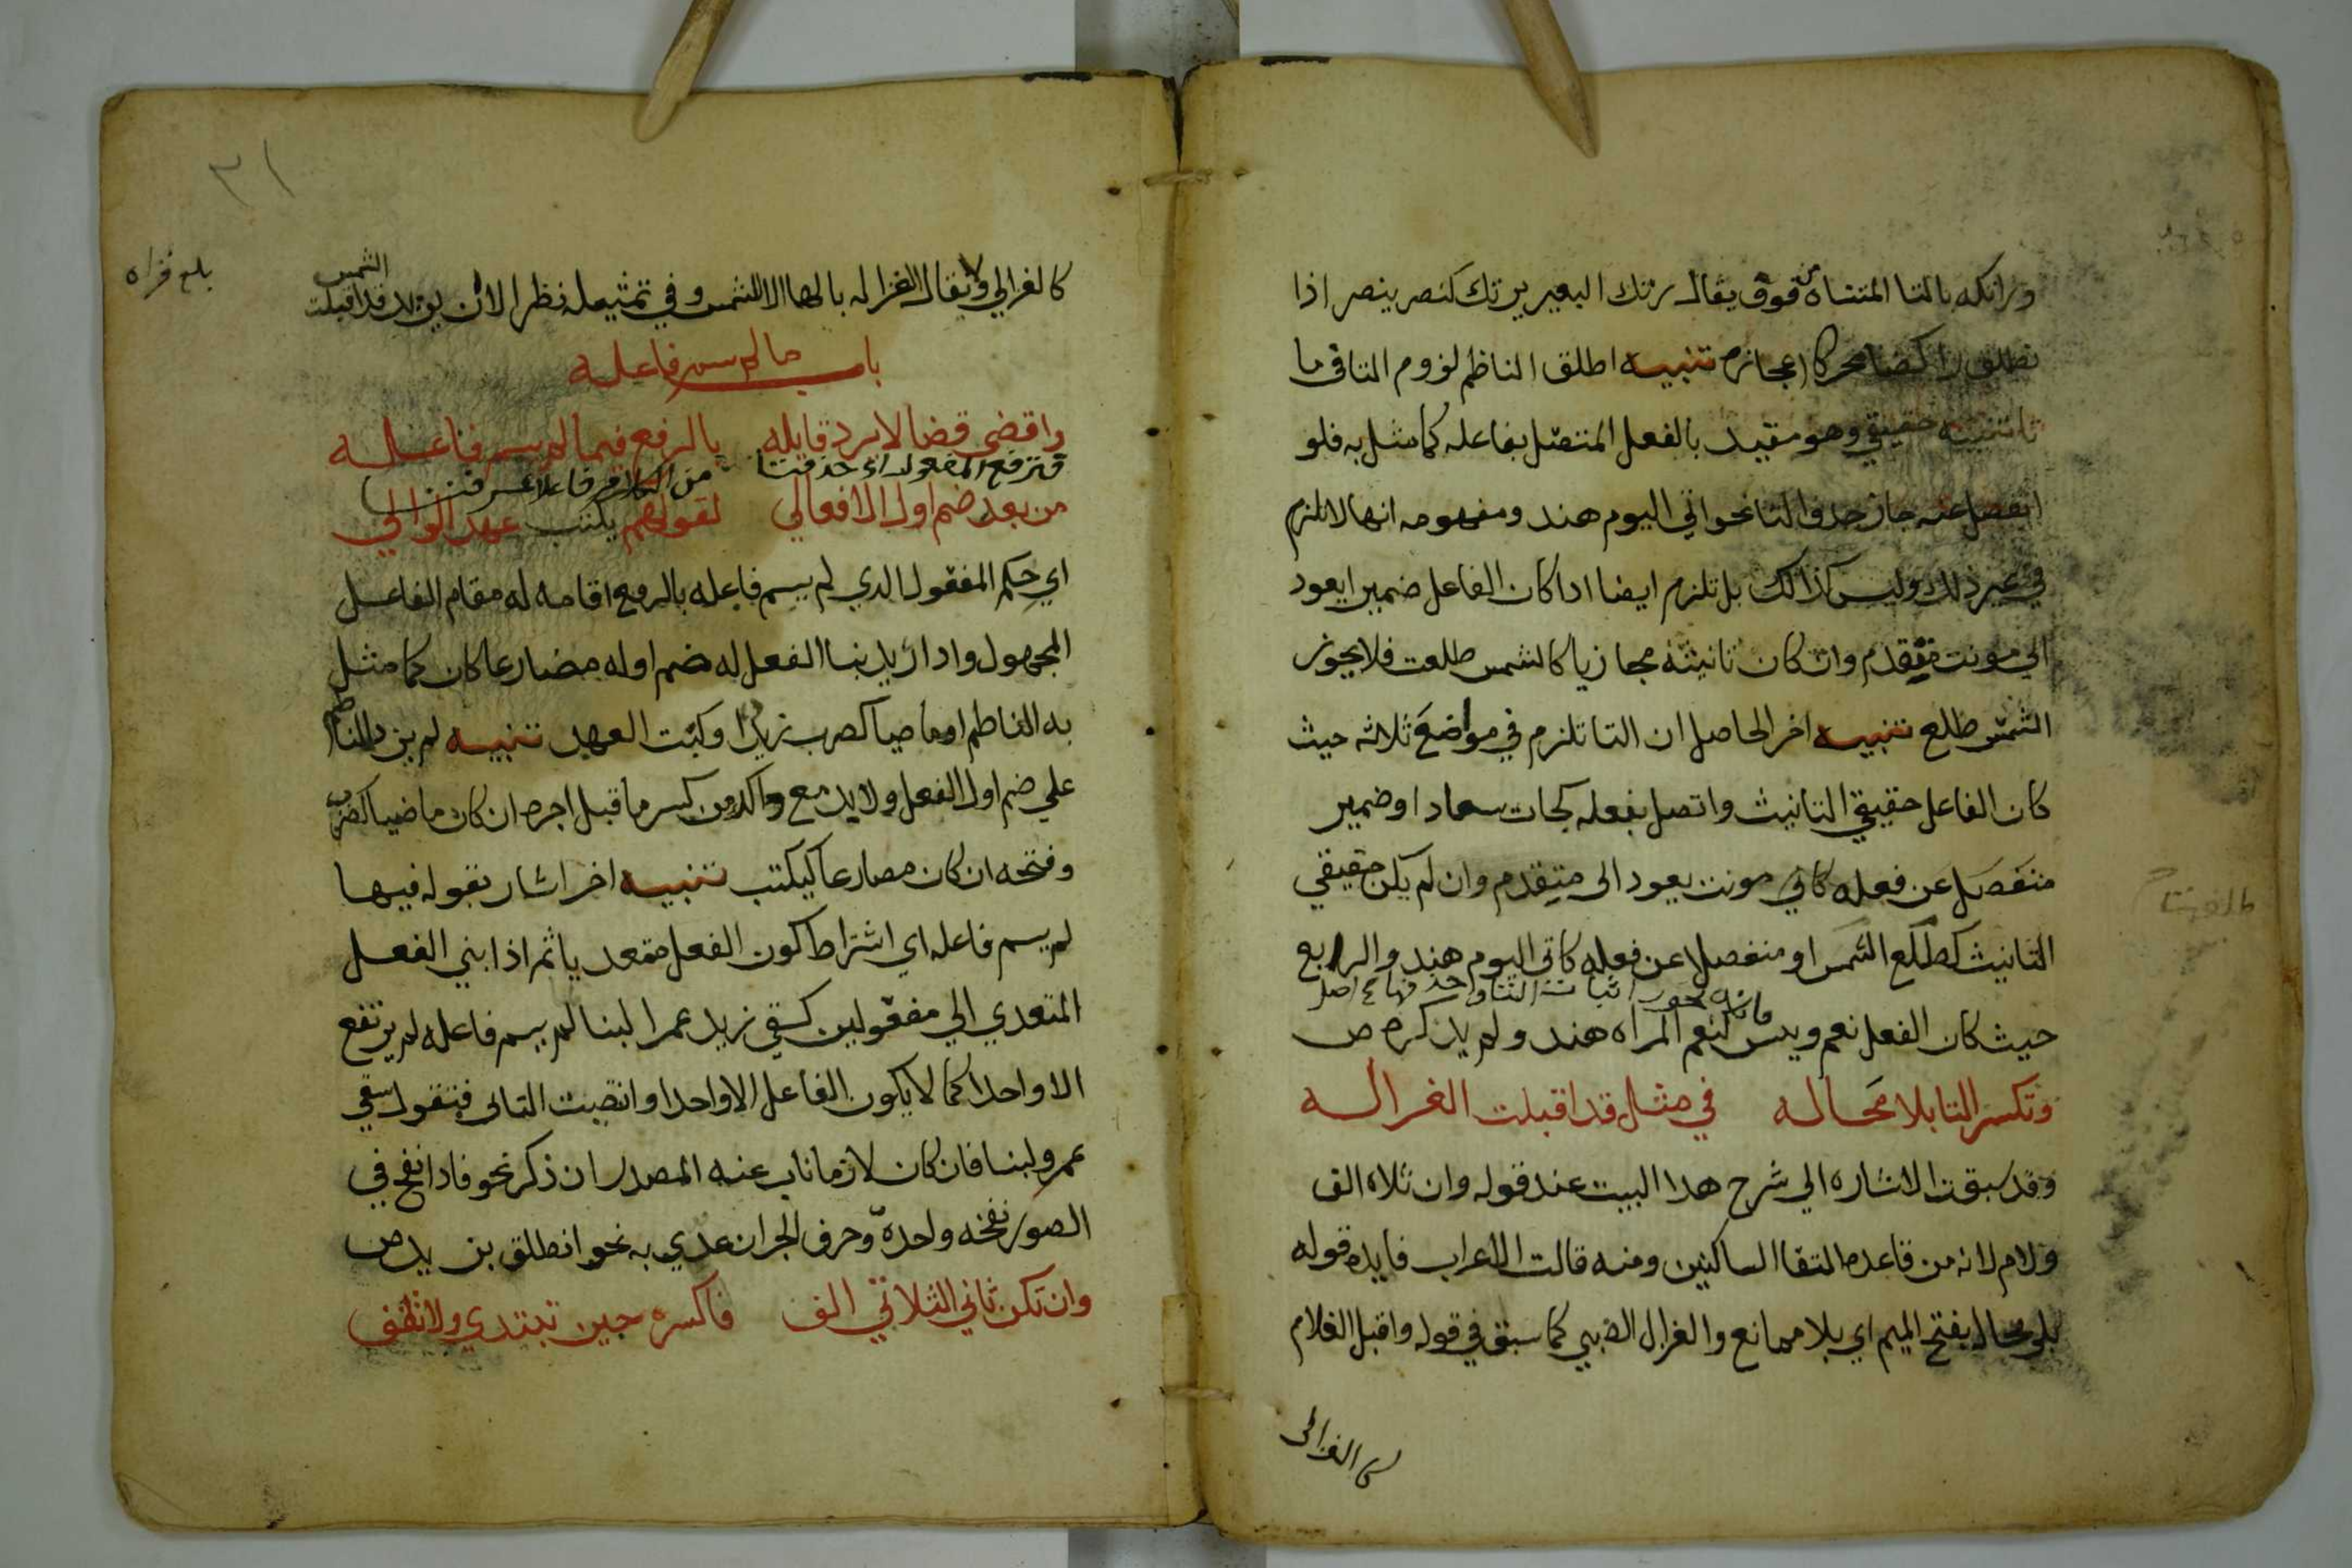 وراتكه بالتا المتناه من فوق يقال رتك البعير يرتك كنصر ينصر اذا
نطلق راكضا محركا اعجازه تنبيه اطلق الناظم لزوم التا في ما
تانيثه حقيقي وهو مقيد بالفعل المتصل بفاعله كما مثل به فلو
انفصل عنه جاز حذف التا نحو اتي اليوم هند ومفهومه انها لا تلزم
في غير ذلك وليس كذالك بل تلزم ايضا اذا كان الفاعل ضميرا يعود
الي مونت متقدم وان كان تانيثه مجازيا كالشمس طلعت فلا يجوز
الشمس طلع تنبيه اخر الحاصل ان التا تلزم في مواضع ثلاثه حيث
كان الفاعل حقيقي التانيث واتصل بفعله كجات سعاد او ضمير
منفصل عن فعله كاتي مونت يعود الى متقدم وان لم يكن حقيقي
التانيث كطلع الشمس او منفصلا عن فعله كاتى اليوم هند والرابع
فانه يجوز اثبات التا وحذفها صح اصل
حيث كان الفعل نعم وبيس كنعم المراه هند ولم يذكره ص
وتكسر التا بلا محاله في مثل قد اقبلت الغزاله
وقد سبقت الاشاره الي شرح هدا البيت عند قوله وان تلاه الف
ولام لانه من قاعده التقا الساكنين ومنه قالت الاعراب فايده قوله
بلا محاله بفتح الميم اي بلا ممانع والغزال الضبي كما سبق في قوله واقبل الغلام
كالغزالي
٣١
بلغ قراه
كالغزالي ولا يقال الغزاله بالها الا للشمس وفي تمثيله نظر الا ان يريد قد اقبلت الشمس
باب ما لم يسم فاعله
واقض قضا لا يرد قايله بالرفع فيما لم يسم فاعله
فترفع المفعول اذ حذفتا من الكلام فاعلا عرفتا
من بعد ضم اول الافعالي كقولهم يكتب عهد الوالي
اي حكم المفعول الدي لم يسم فاعله بالرفع اقامه له مقام الفاعل
المجهول وادا اريد بنا الفعل له ضم اوله مضارعا كان كما مثل
به الناظم او ماضيا كضرب زيدا وكتب العهد تنبيه لم يزد الناظم
علي ضم اول الفعل ولابد مع داك من كسر ما قبل اجره ان كان ماضيا كضرب
وفتحه ان كان مصارعا كيكتب تنبيه اخر اشار بقوله فيها
لم يسم فاعله اي اشتراط كون الفعل متعديا ثم اذا بني الفعل
المتعدي الي مفعولين كسقي زيد عمرا لبنا لم يسم فاعله لم يرتفع
الا واحدا كما لا يكون الفاعل الا واحدا وانتصبت التانى فتقول سقي
عمرو لبنا فان كان لازما ناب عنه المصدر ان ذكر نحو فادا نفخ في
الصور نفخه واحدة وحرف الجر ان عدي به نحو انطلق بزيد ص
وان تكن ثاني الثلاتي الف فاكسره حين تبتدي ولا تقف